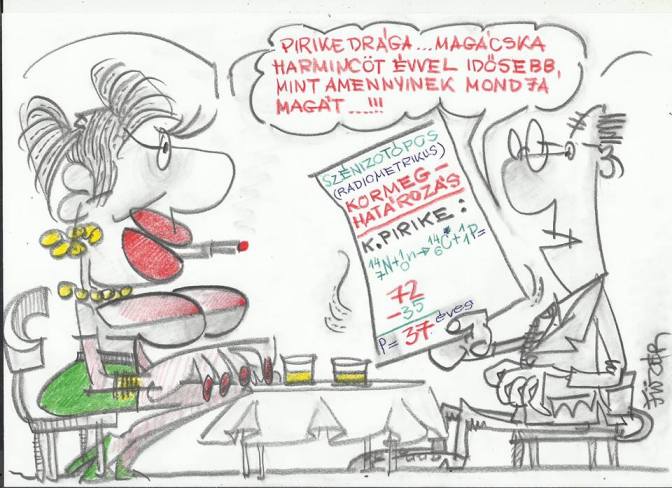 PIRIKE DRÁGA...MAGÁCSKA
HARMINCÖT ÉVVEL IDŐSEBB,
MINT AMENNYINEK MONDJA
MAGÁT...!!!
SZÉNIZOTÓPOS
(RADIOMETRIKUS)
KORMEG-
HATÁROZÁS
K.PIRIKE:
¹⁴₇N+¹₀n→¹⁴₆C+¹₁P=
72
-35
P= 37 éves